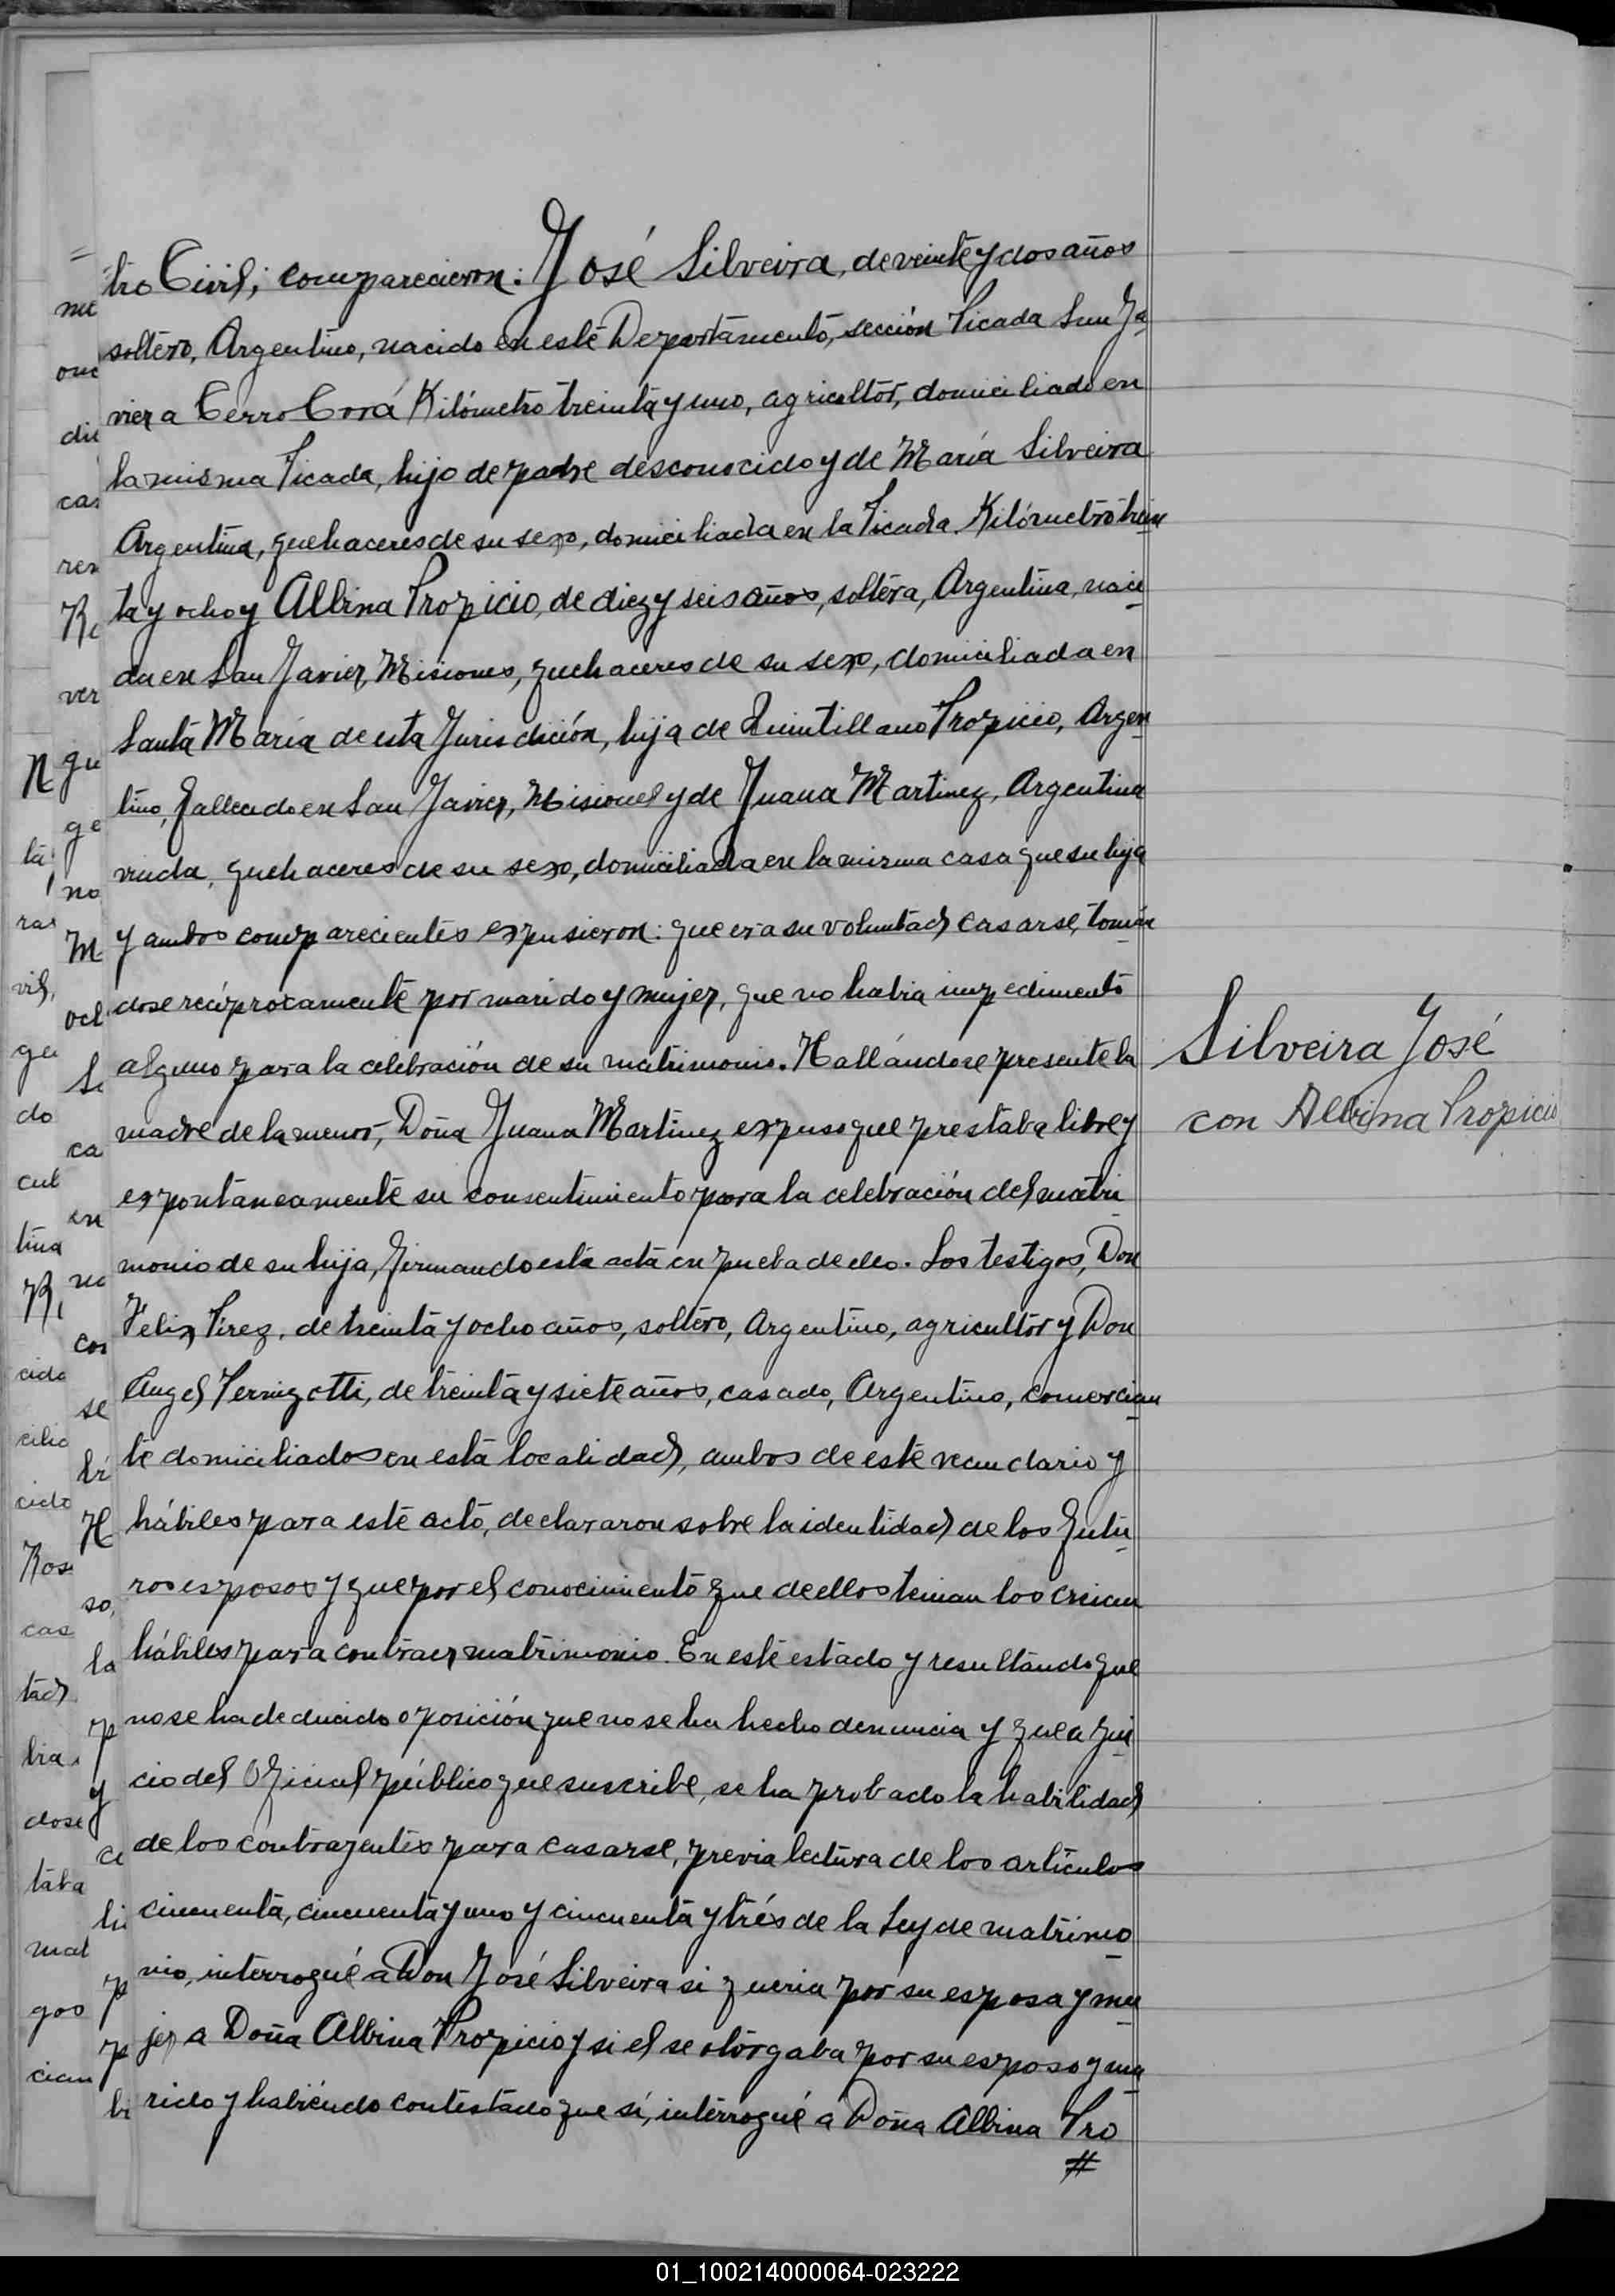 tro Civil; comparecieron: José Silveira, de veinte y dos años
soltero, Argentino, nacido en este Departamento, sección Picada San Ja
vier a Cerro Corá Kilómetro treinta y uno, agricultor, domiciliado en
la misma Picada, hijo de padre desconocido y de María Silveira
Argentina, quehaceres de su sexo, domiciliada en la Picada Kilómetro trein
ta y ocho y Albina Propicio, de diez y seis años, soltera, Argentina, naci
da en San Javier, Misiones, quehaceres de su sexo, domiciliada en
Santa María de esta Jurisdición, hija de Quintillano Propicio, Argen
tino, fallecido en San Javier, Misiones y de Juana Martinez, Argentina
viuda, quehaceres de su sexo, domiciliada en la misma casa que su hija
y ambos comparecientes expusieron: que era su voluntad casarse, tomán
dose recíprocamente por marido y mujer, que no habia impedimento
alguno para la celebración de su matrimonio. Hallándose presente la
madre de la menor, Doña Juana Martinez expuso que prestaba libre y
expontaneamente su consentimiento para la celebración del matri
monio de su hija, firmando esta acta en prueba de ello. Los testigos, Don
Felix Pirez, de treinta y ocho años, soltero, Argentino, agricultor y Don
Angel Pernigotti, de treinta y siete años, casado, Argentino, comercian
te domiciliados en esta localidad, ambos de este vecindario y
hábiles para este acto, declararon sobre la identidad de los futu
ros esposos y que por el conocimiento que de ellos tenian los creian
hábiles para contraer matrimonio. En este estado y resultando que
no se ha deducido oposición que no se ha hecho denuncia y que a jui
cio del Oficial público que suscribe, se ha probado la habilidad
de los contrayentes para casarse, previa lectura de los artículos
cincuenta, cincuenta y uno y cincuenta y trés de la Ley de matrimo
nio, interrogué a Don José Silveira si queria por su esposa y mu
jer a Doña Albina Propicio y si el se otorgaba por su esposo y ma
rido y habiéndo contestado que sí, interrogué á Doña Albina Pro
#
Silveira José
con Albina Propicio
01_100214000064-023222